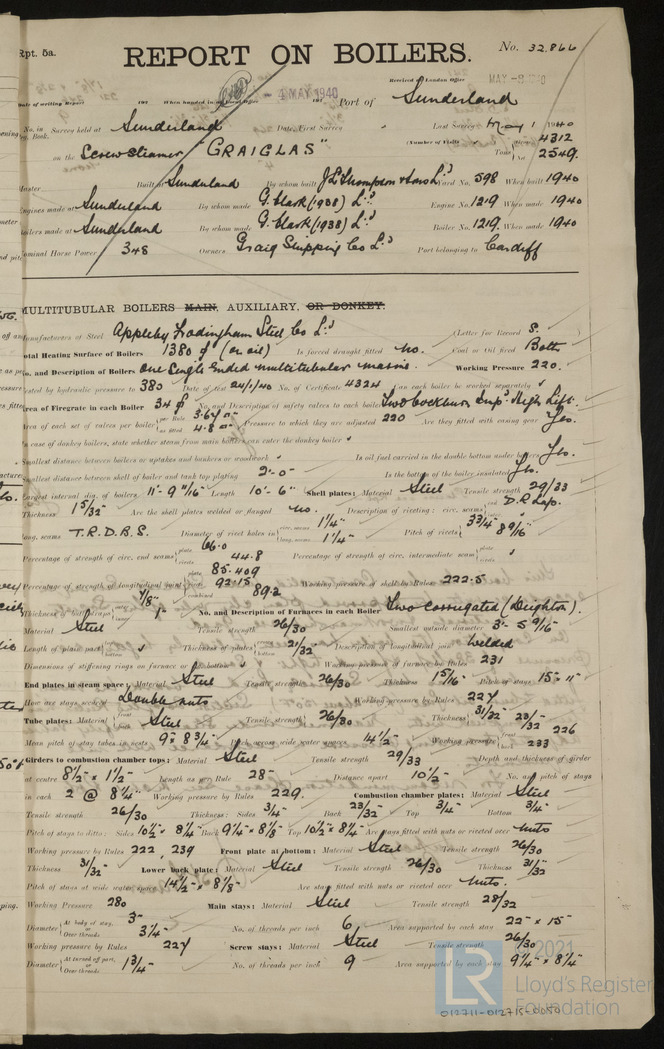 Rpt. 5a.
REPORT ON BOILERS.
No. 32,866
Received at London Office MAY 1940
Date of writing Report 19 When handed in at Local Office MAY 1940 19 Port of Sunderland
No. in Reg. Book. Survey held at Sunderland Date, First Survey Last Survey May 1 1940
on the Screw Steamer "GRAIGLAS" (Number of Visits Gross 4312
Tons Net 2549.
Master Built at Sunderland By whom built J L Thompson & Sons Ld Yard No. 598 When built 1940
Engines made at Sunderland By whom made G. Clark (1938) Ld Engine No. 1219 When made 1940
Boilers made at Sunderland By whom made G. Clark (1938) Ld Boiler No. 1219 When made 1940
Nominal Horse Power 348 Owners Graig Shipping Co Ld Port belonging to Cardiff
MULTITUBULAR BOILERS MAIN, AUXILIARY, OR DONKEY.
Manufacturers of Steel Appleby Frodingham Steel Co Ld (Letter for Record S. )
Total Heating Surface of Boilers 1380 (on oil) Is forced draught fitted No. Coal or Oil fired Both
No. and Description of Boilers One Single Ended multitubular marine. Working Pressure 220.
Tested by hydraulic pressure to 380 Date of test 24/1/40 No. of Certificate 4324 Can each boiler be worked separately
Area of Firegrate in each Boiler 34 No. and Description of safety valves to each boiler Two Cockburn Impd High Lift.
Area of each set of valves per boiler per Rule 3.64 as fitted 4.8 Pressure to which they are adjusted 220 Are they fitted with easing gear Yes.
In case of donkey boilers, state whether steam from main boilers can enter the donkey boiler
Smallest distance between boilers or uptakes and bunkers or woodwork Is oil fuel carried in the double bottom under boilers Yes.
Smallest distance between shell of boiler and tank top plating 2'-0" Is the bottom of the boiler insulated Yes.
Largest internal dia. of boilers 11'-9 11/16" Length 10'-6" Shell plates: Material Steel Tensile strength 29/33
Thickness 1 5/32" Are the shell plates welded or flanged No. Description of riveting: circ. seams end D.R Lap.
long. seams T.R.D.B.S. Diameter of rivet holes in circ. seams 1 1/4" long. seams 1 1/4" Pitch of rivets 3 3/4" 8 9/16"
Percentage of strength of circ. end seams plate 66.0 rivets 44.8 Percentage of strength of circ. intermediate seam plate rivets
Percentage of strength of longitudinal joint plate 85.409 rivets 92.15 combined 89.2 Working pressure of shell by Rules 222.5
Thickness of butt straps outer 7/8" inner 1" No. and Description of Furnaces in each Boiler Two corrugated (Deighton).
Material Steel Tensile strength 26/30 Smallest outside diameter 3'-5 9/16"
Length of plain part top bottom Thickness of plates 21/32" Description of longitudinal joint Welded
Dimensions of stiffening rings on furnace or c.c. bottom Working pressure of furnace by Rules 231
End plates in steam space: Material Steel Tensile strength 26/30 Thickness 15/16" Pitch of stays 15" 11"
How are stays secured Double nuts Working pressure by Rules 224
Tube plates: Material front back Steel Tensile strength 26/30 Thickness 31/32" 23/32"
Mean pitch of stay tubes in nests 9" x 8 3/4" Pitch across wide water spaces 14 1/2" Working pressure front 226 back 233
Girders to combustion chamber tops: Material Steel Tensile strength 29/33 Depth and thickness of girder
at centre 8 1/2" x 1 1/2" Length as per Rule 28" Distance apart 10 1/2" No. and pitch of stays
in each 2 @ 8 1/4" Working pressure by Rules 229. Combustion chamber plates: Material Steel
Tensile strength 26/30 Thickness: Sides 3/4" Back 23/32" Top 3/4" Bottom 3/4"
Pitch of stays to ditto: Sides 10 1/2" x 8 1/4" Back 9 1/4" x 8 1/8" Top 10 1/2" x 8 1/4" Are stays fitted with nuts or riveted over Nuts
Working pressure by Rules 222, 239 Front plate at bottom: Material Steel Tensile strength 26/30
Thickness 31/32" Lower back plate: Material Steel Tensile strength 26/30 Thickness 31/32"
Pitch of stays at wide water space 14 1/2" x 8 1/8" Are stays fitted with nuts or riveted over Nuts.
Working Pressure 280 Main stays: Material Steel Tensile strength 28/32
Diameter At body of stay, or Over threads 3" 3 1/4" No. of threads per inch 6 Area supported by each stay 22" x 15"
Working pressure by Rules 224 Screw stays: Material Steel Tensile strength 26/30
Diameter At turned off part, or Over threads 1 3/4" No. of threads per inch 9 Area supported by each stay 9 1/4" x 8 1/4"
© 2021
LR
Lloyd's Register
Foundation
012711-012715-0050